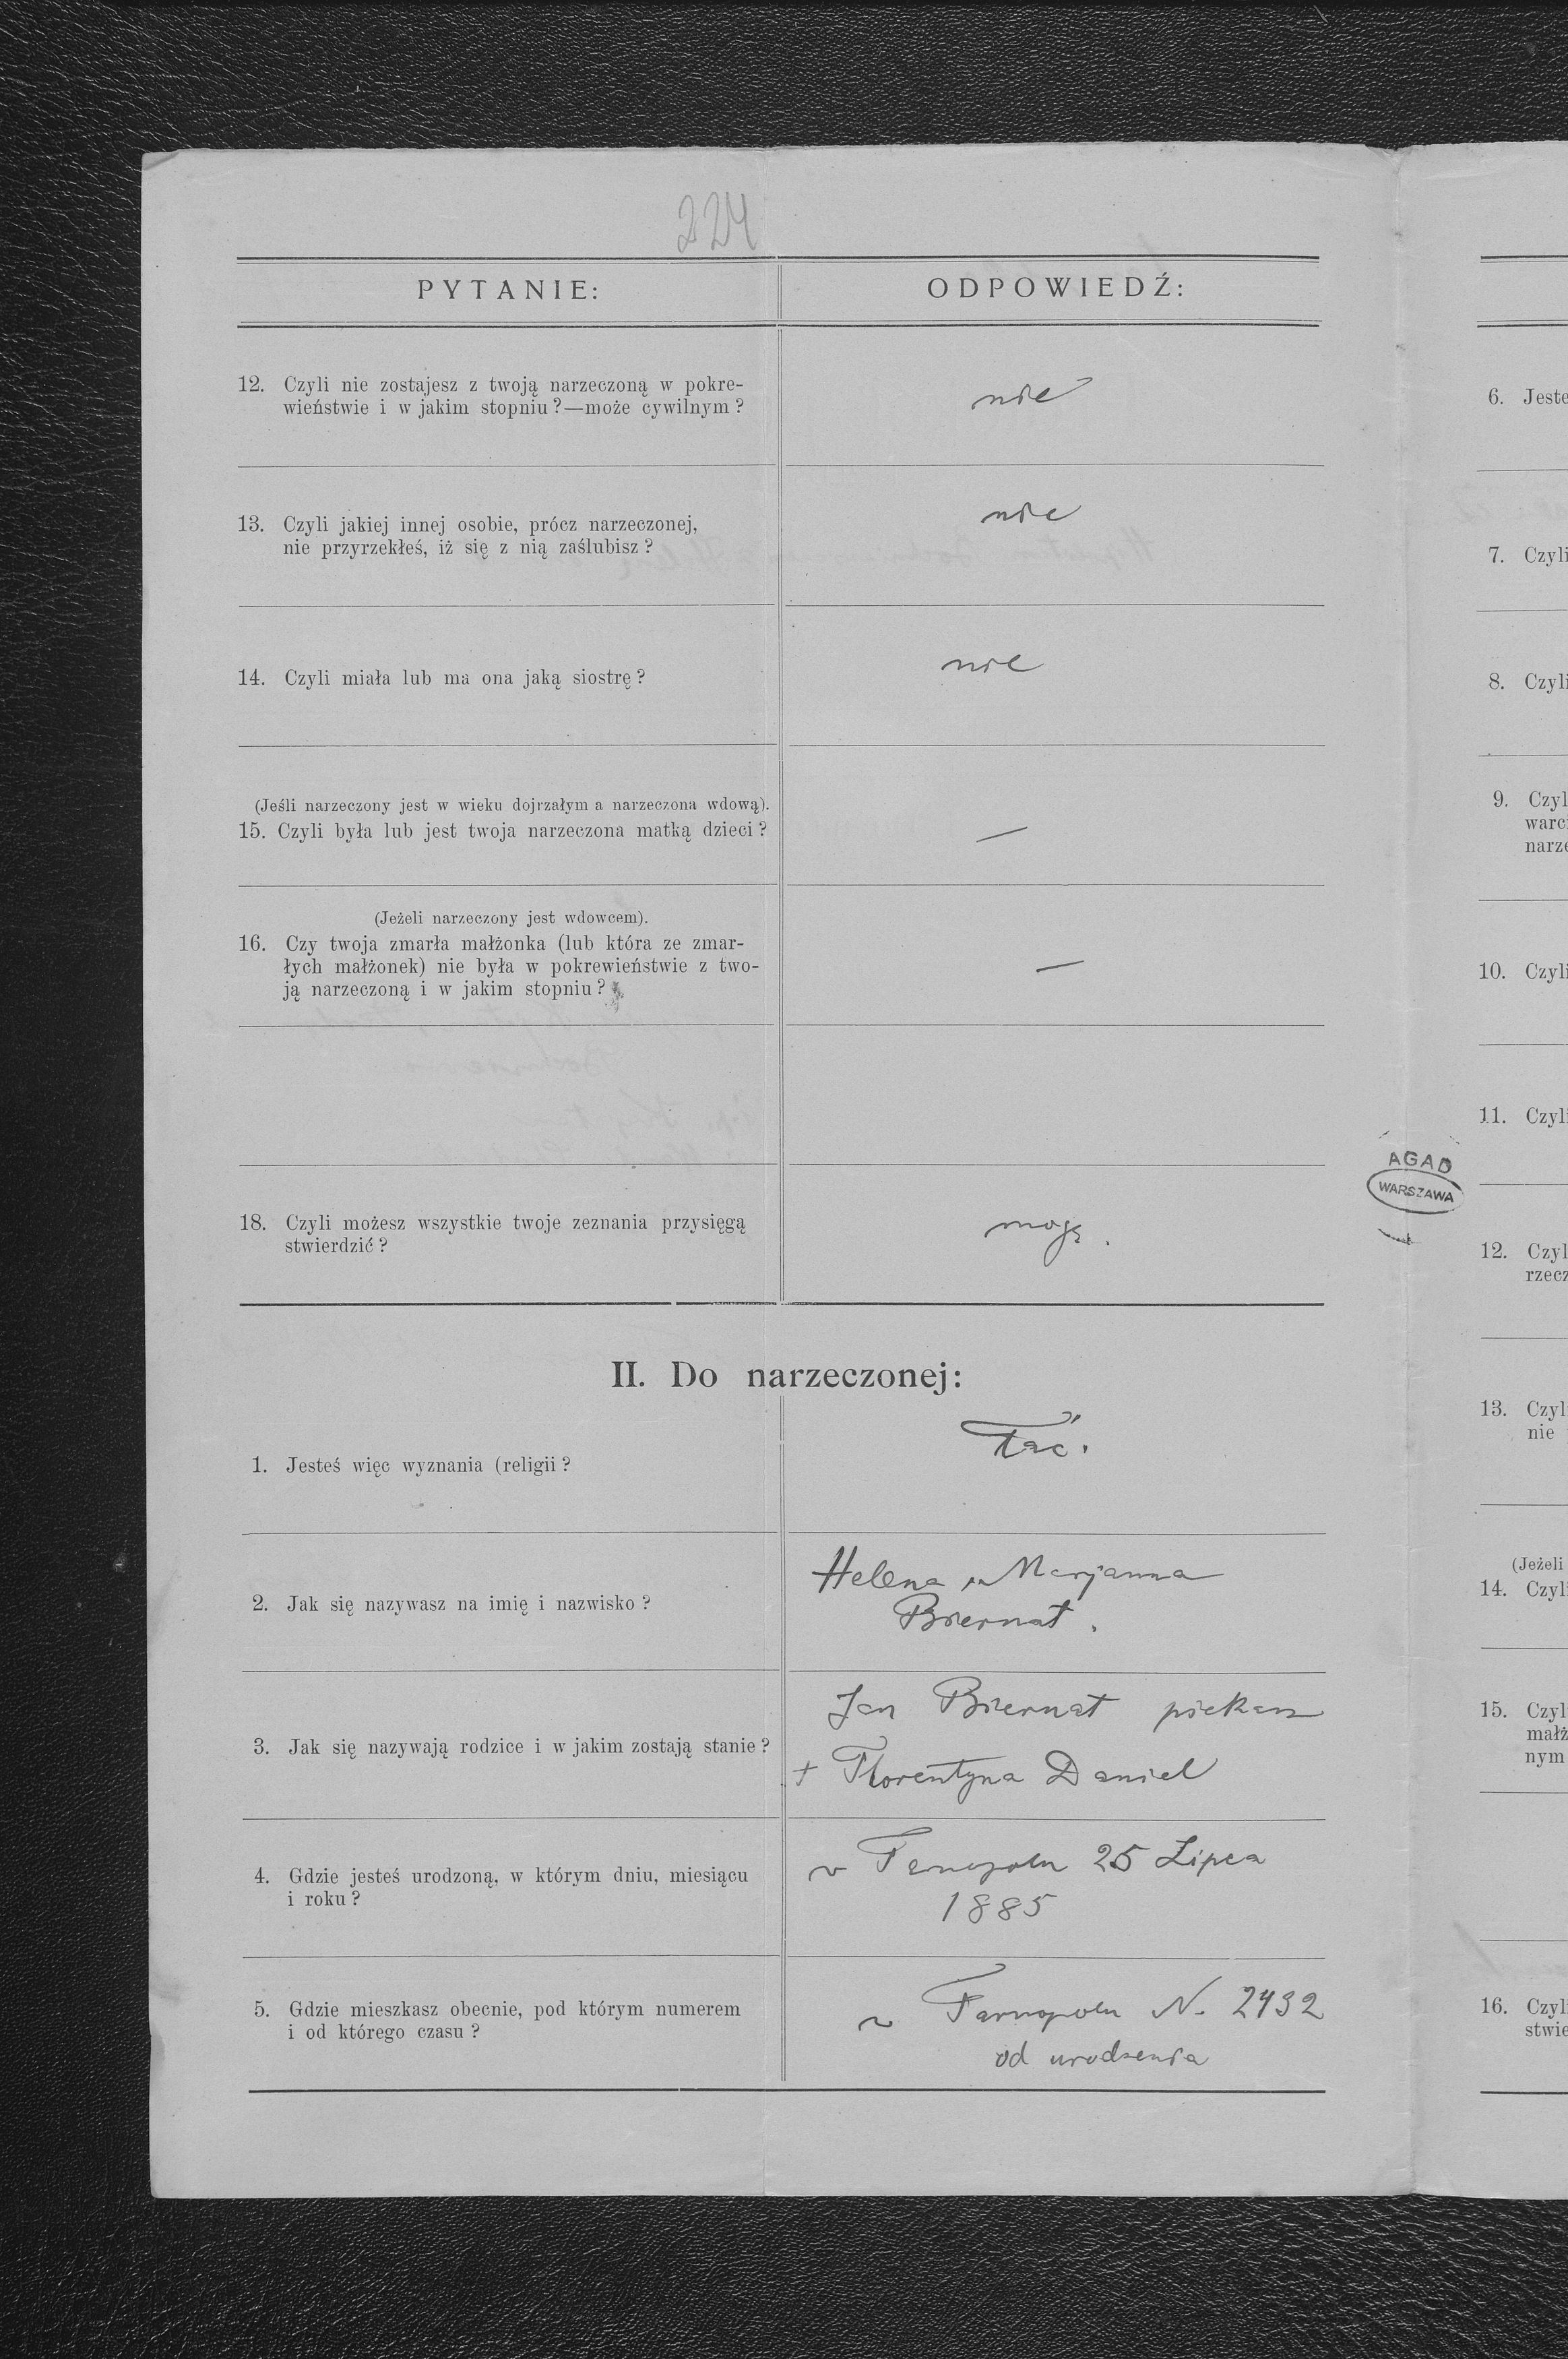 224
PYTANIE:
ODPOWIEDŹ:
12. Czyli nie zostajesz z twoją narzeczoną w pokre-
wieństwie i w jakim stopniu?—może cywilnym?
nie
13. Czyli jakiej innej osobie, prócz narzeczonej,
nie przyrzekłeś, iż się z nią zaślubisz?
nie
14. Czyli miała lub ma ona jaką siostrę?
nie
(Jeśli narzeczony jest w wieku dojrzałym a narzeczona wdową).
15. Czyli była lub jest twoja narzeczona matką dzieci?
—
(Jeżeli narzeczony jest wdowcem).
16. Czy twoja zmarła małżonka (lub która ze zmar-
łych małżonek) nie była w pokrewieństwie z two-
ją narzeczoną i w jakim stopniu?
—
18. Czyli możesz wszystkie twoje zeznania przysięgą
stwierdzić?
mogę.
II. Do narzeczonej:
1. Jesteś więc wyznania (religii?
łać.
2. Jak się nazywasz na imię i nazwisko?
Helena Marjanna
Biernat.
3. Jak się nazywają rodzice i w jakim zostają stanie?
Jan Biernat piekarz
+ Florentyna Daniel
4. Gdzie jesteś urodzoną, w którym dniu, miesiącu
i roku?
w Tarnopolu 25 Lipca
1885
5. Gdzie mieszkasz obecnie, pod którym numerem
i od którego czasu?
w Tarnopolu N. 2432
od urodzenia
AGAD
WARSZAWA
6. Jeste
7. Czyli
8. Czyli
9. Czyl
warc
narze
10. Czyli
11. Czyli
12. Czyl
rzecz
13. Czyl
nie
(Jeżeli
14. Czyl
15. Czyl
małż
nym
16. Czyl
stwie